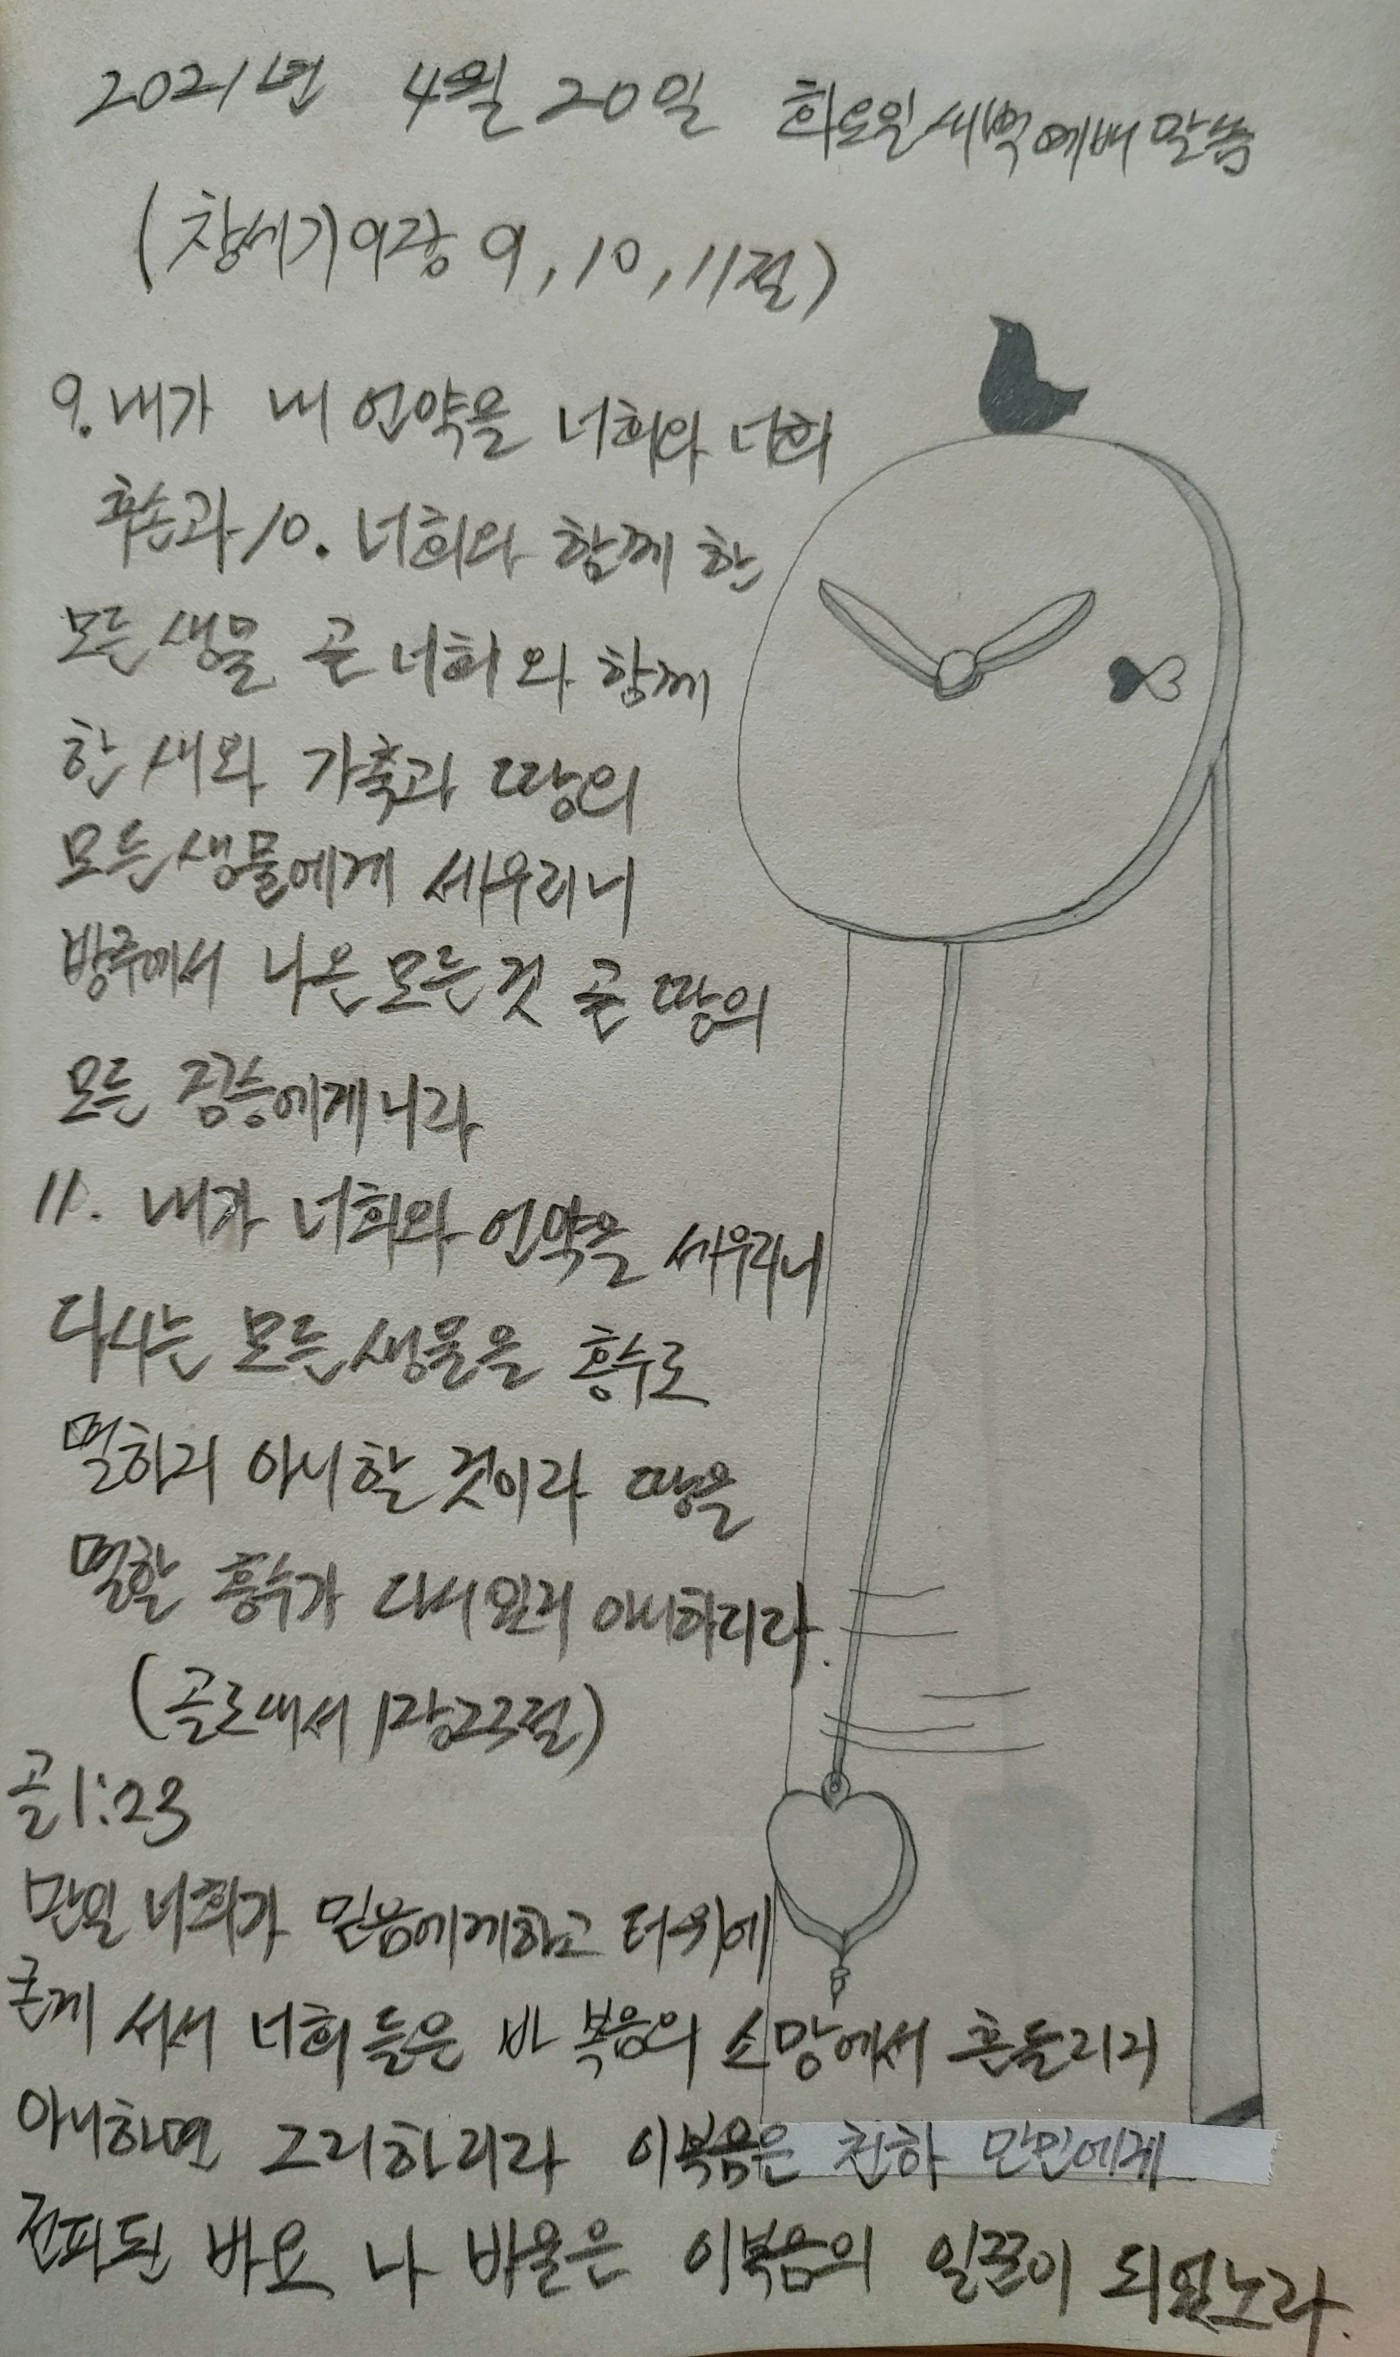 2021년 4월 20일 화요일 새벽예배 말씀
(창세기 9장 9, 10, 11절)
9. 내가 내 언약을 너희와 너희
후손과 10. 너희와 함께 한
모든 생물 곧 너희와 함께
한 새와 가축과 땅의
모든 생물에게 세우리니
방주에서 나온 모든 것 곧 땅의
모든 짐승에게니라
11. 내가 너희와 언약을 세우리니
다시는 모든 생물을 홍수로
멸하지 아니할 것이라 땅을
멸할 홍수가 다시 있지 아니하리라.
(골로새서 1장 23절)
골1:23
만일 너희가 믿음에 거하고 터 위에
굳게 서서 너희 들은 바 복음의 소망에서 흔들리지
아니하면 그리하리라 이 복음은 천하 만민에게
전파된 바요 나 바울은 이 복음의 일꾼이 되었노라.